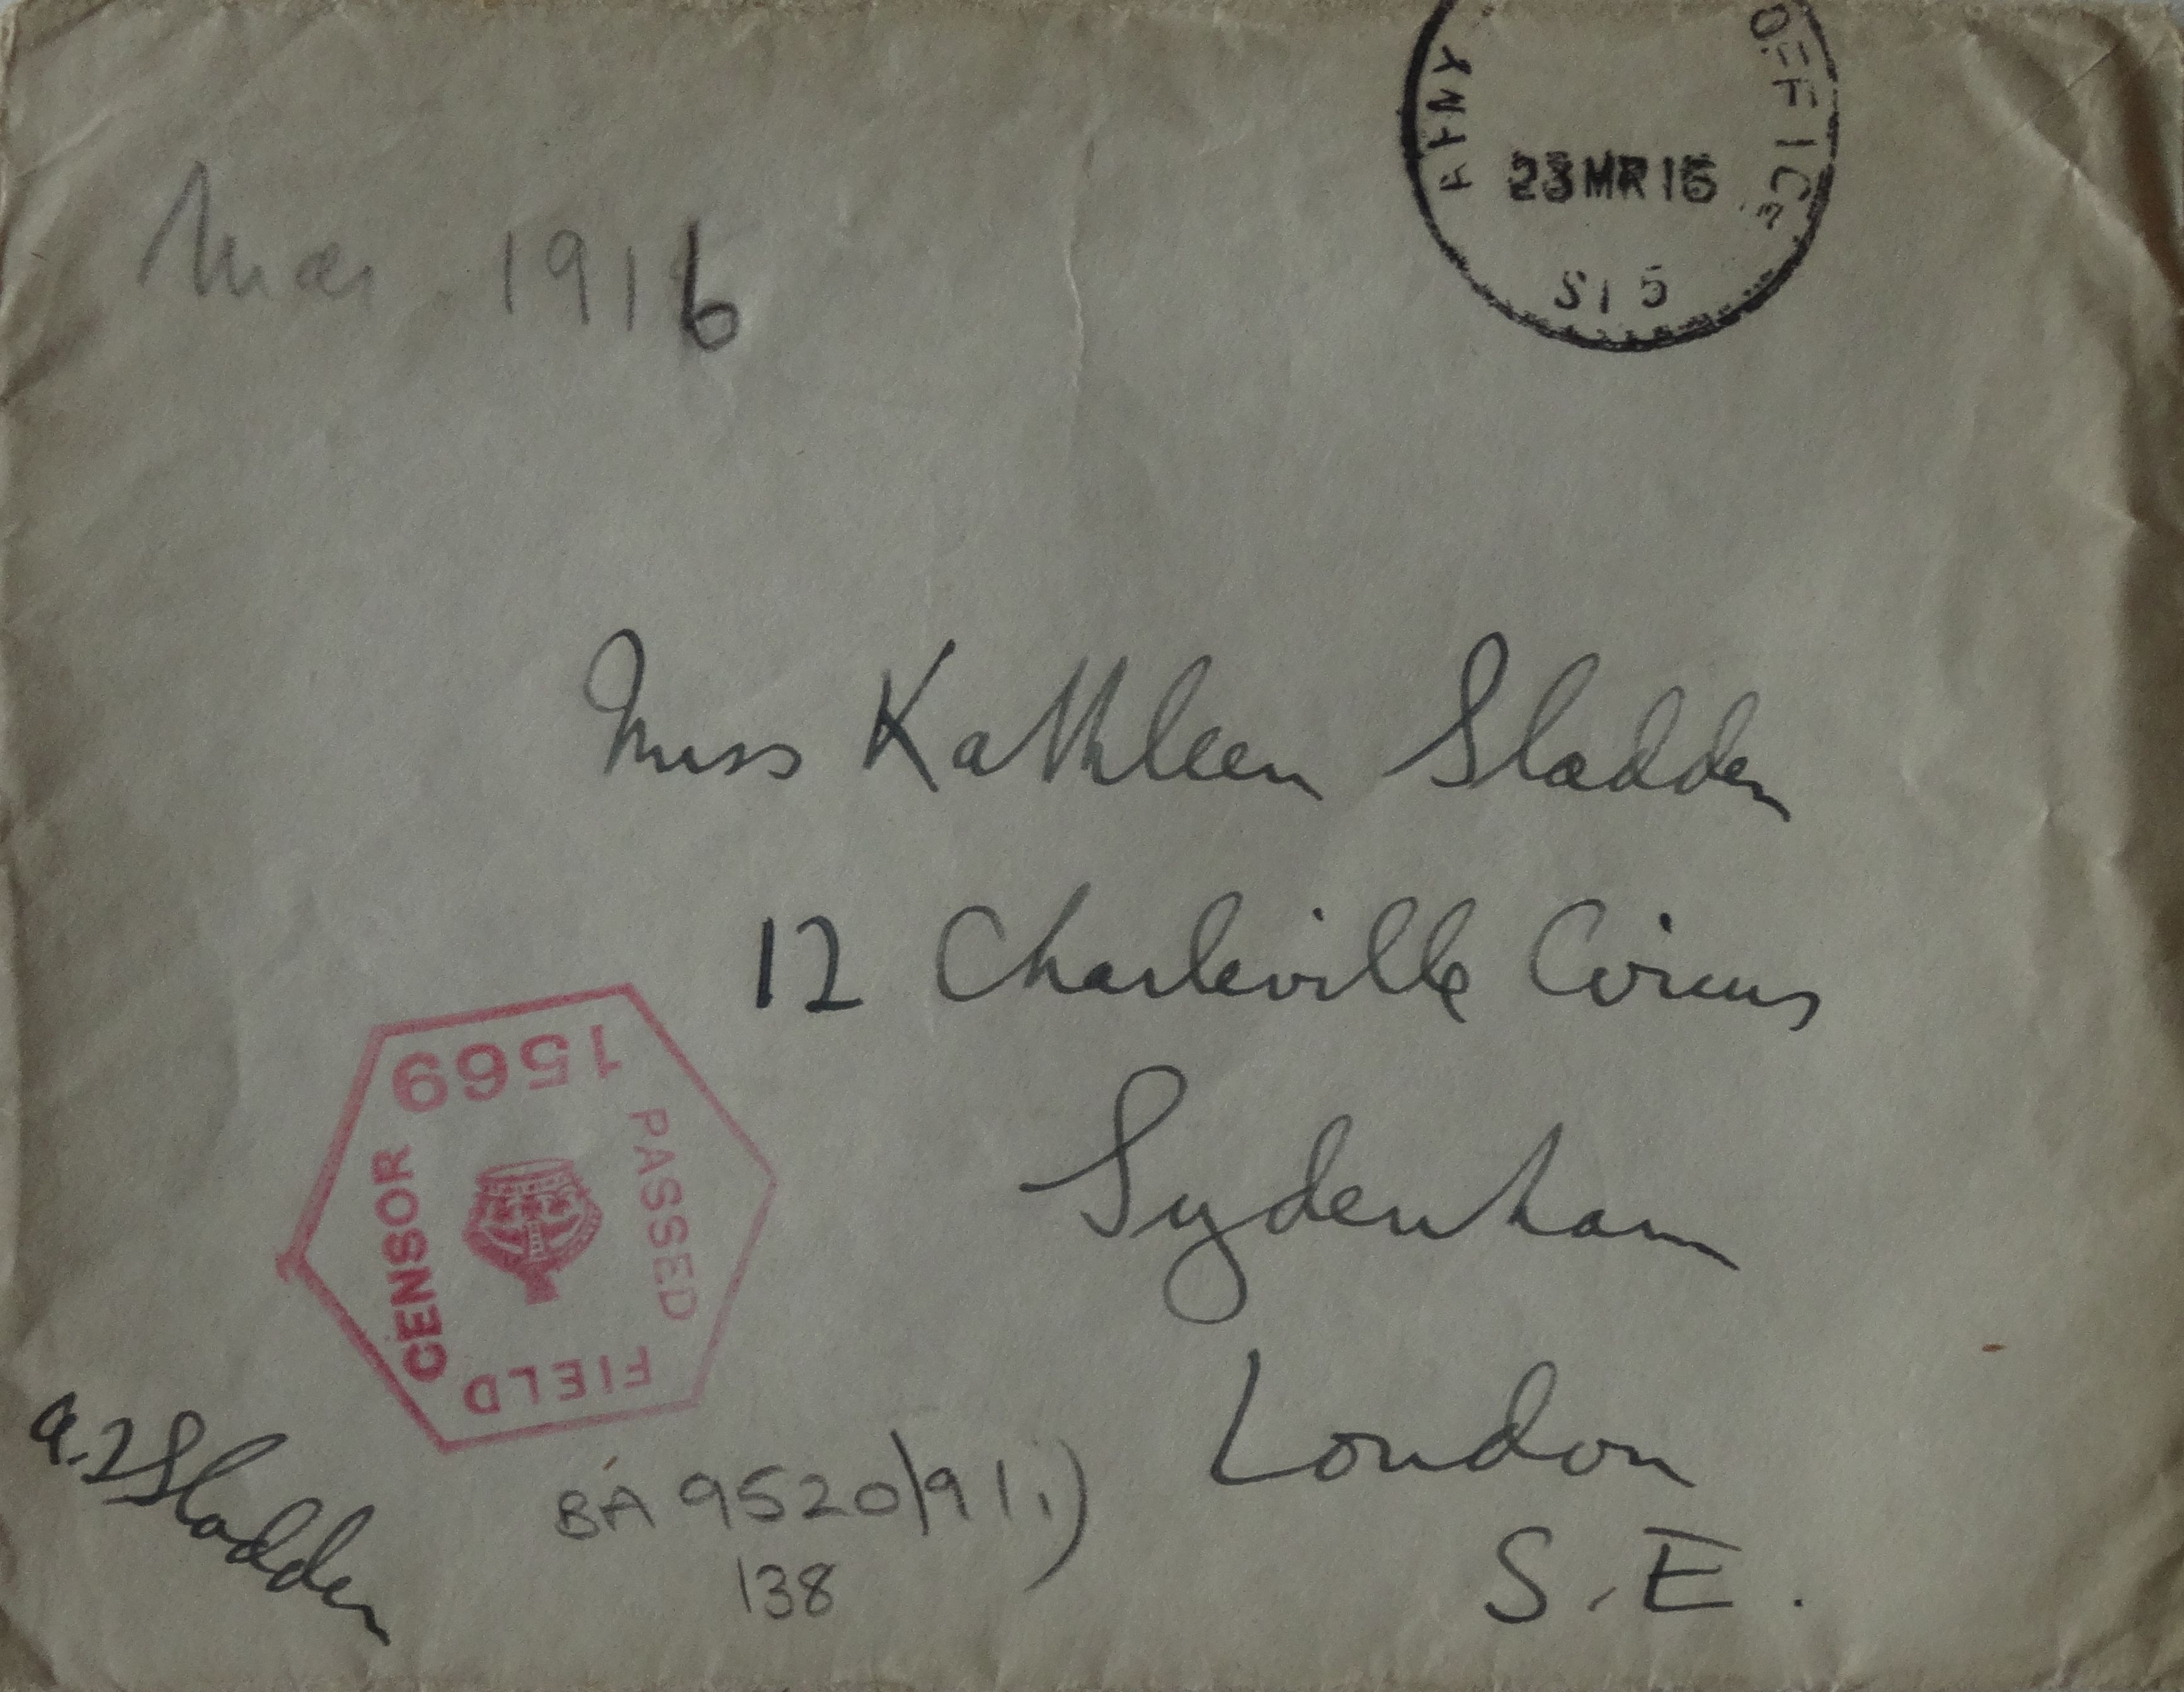 ARMY OFFICE
23 MR 16
S 1 5
Mar. 1916
Miss Kathleen Sladden
12 Charleville Circus
Sydenham
London
S.E.
1569
PASSED
FIELD
CENSOR
BA 9520/91 i)
138
Sladden